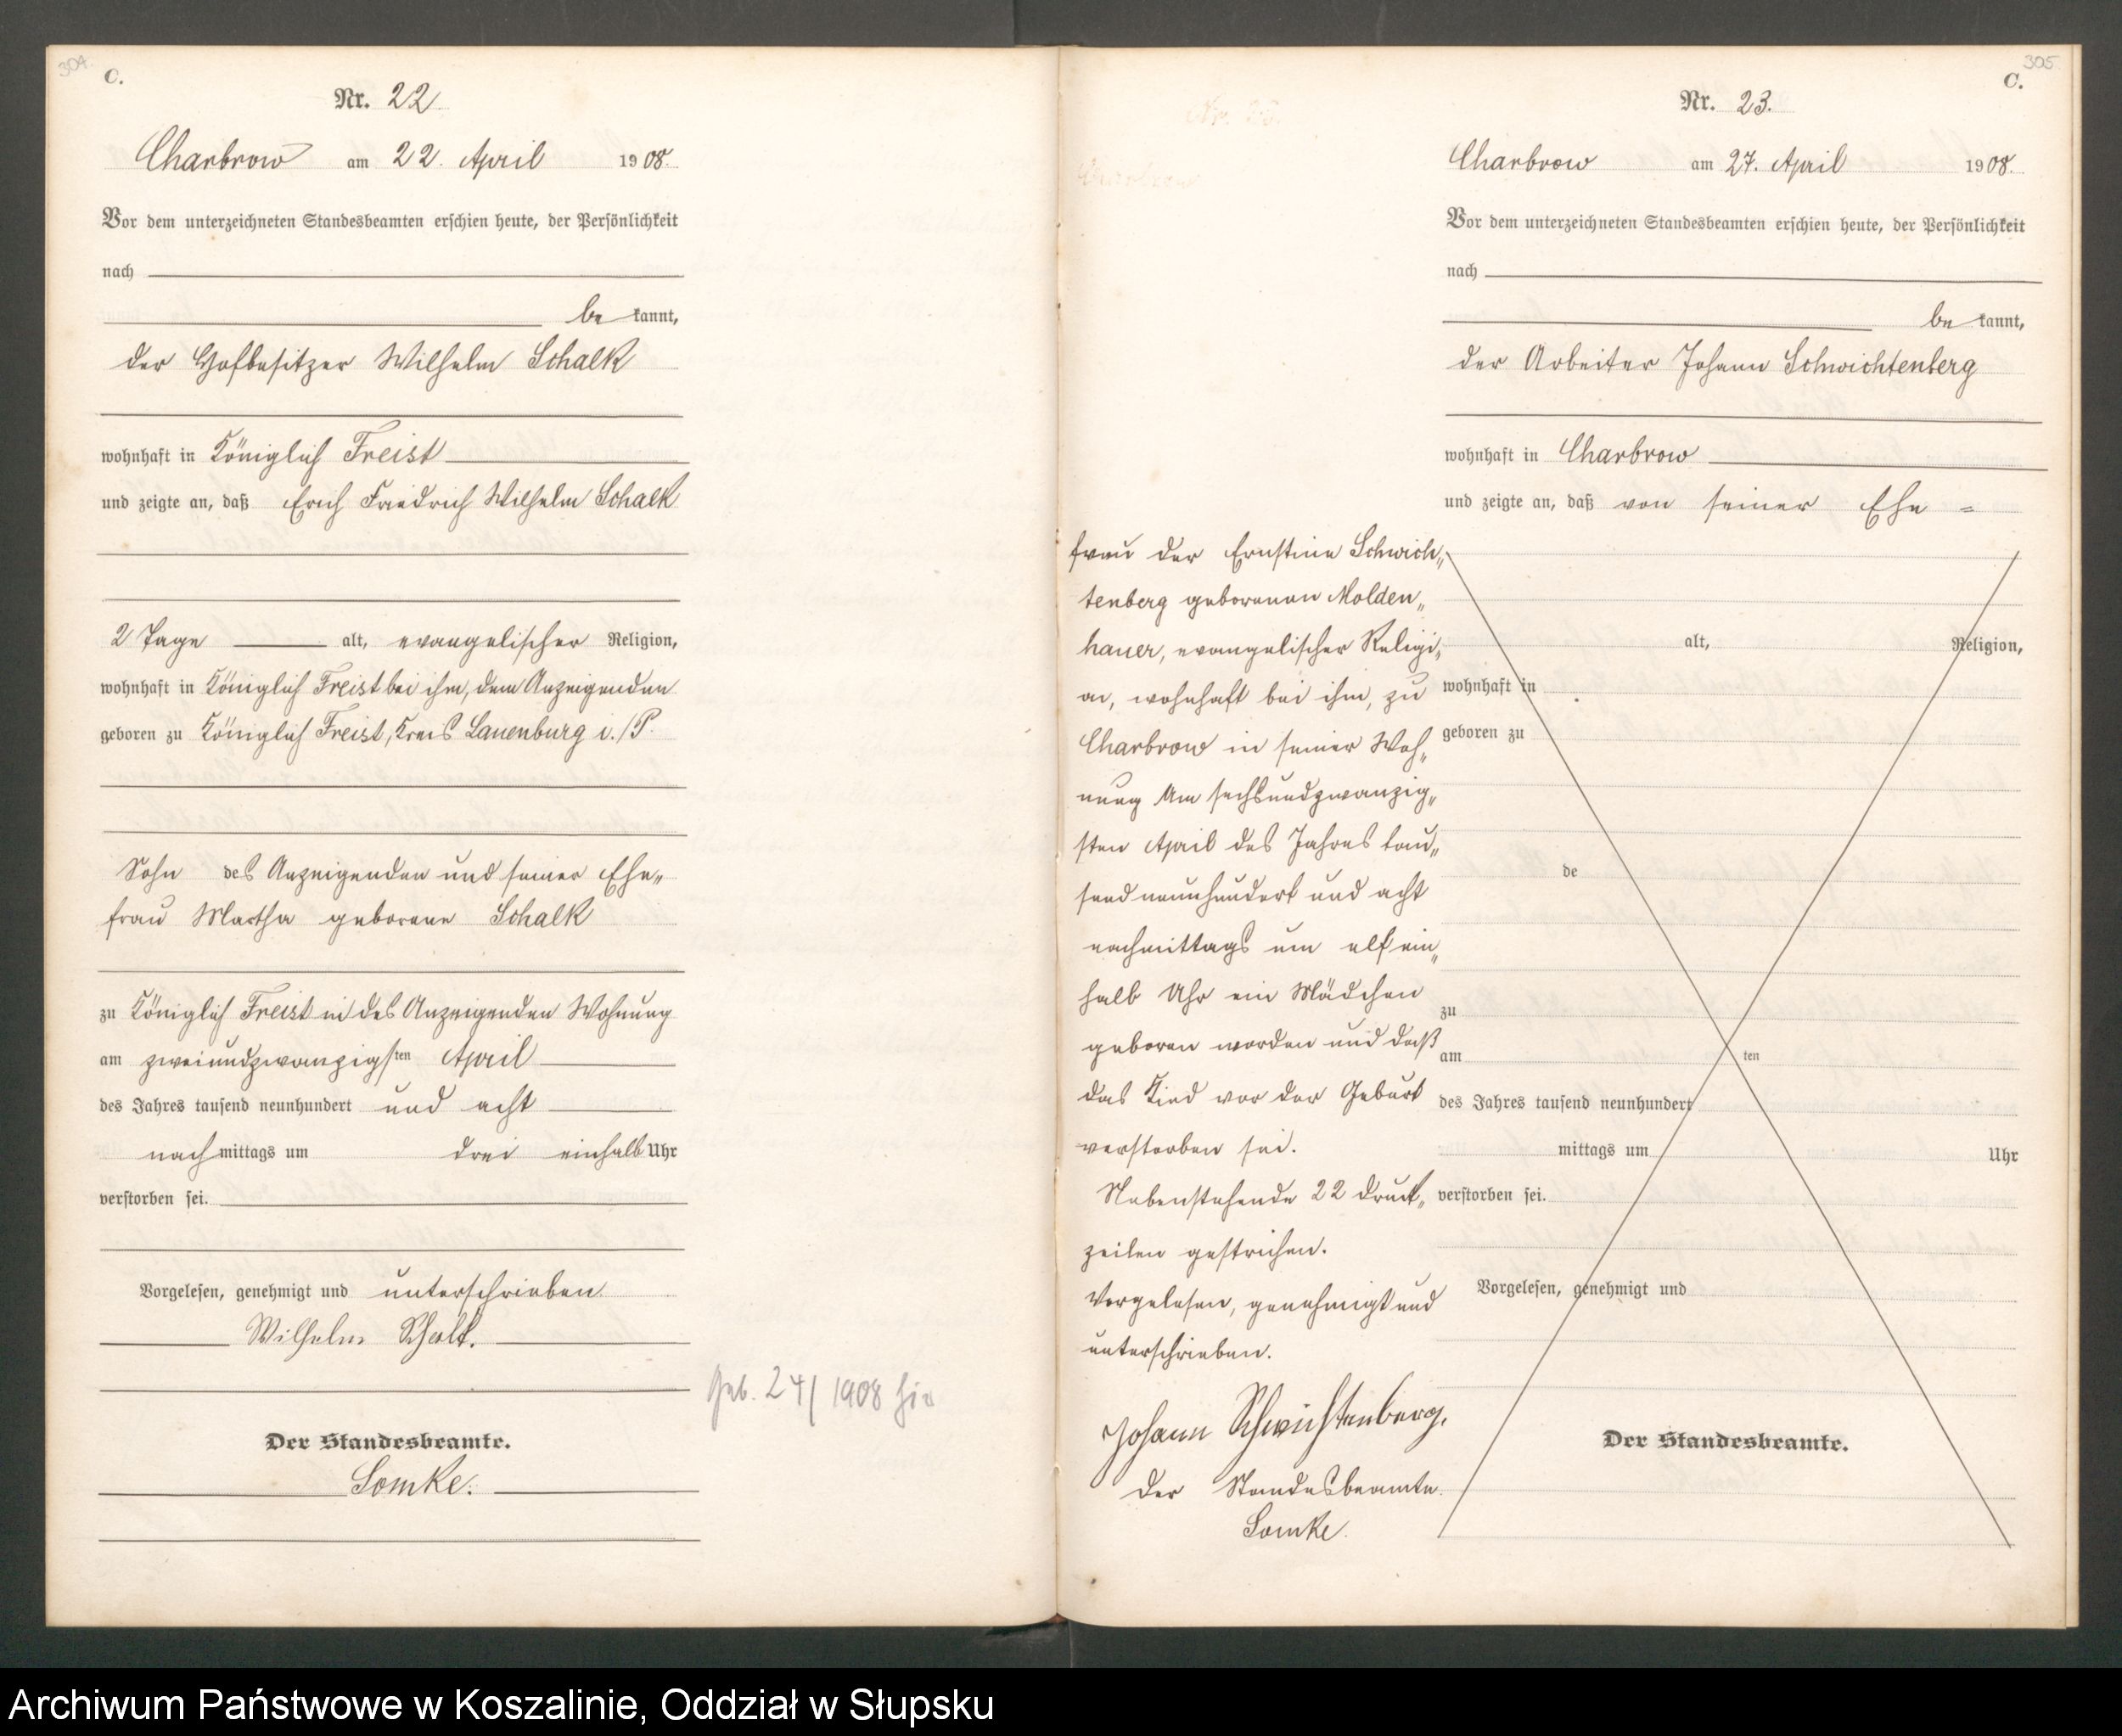 304.
C.
Nr. 22
Charbrow am 22. April 1908.
Vor dem unterzeichneten Standesbeamten erschien heute, der Persönlichkeit
nach
be kannt,
der Hofbesitzer Wilhelm Schalk
wohnhaft in Königlich Freist
und zeigte an, daß Erich Friedrich Wilhelm Schalk
2 Tage alt, evangelischer Religion,
wohnhaft in Königlich Freist bei ihm, dem Anzeigenden
geboren zu Königlich Freist, Kreis Lauenburg i./P.
Sohn des Anzeigenden und seiner Ehe„
frau Martha geborene Schalk
zu Königlich Freist in des Anzeigenden Wohnung
am zweiundzwanzigsten April
des Jahres tausend neunhundert und acht
nach mittags um drei einhalb Uhr
verstorben sei.
Vorgelesen, genehmigt und unterschrieben
Wilhelm Schalk.
Geb. 24/1908 hier
Der Standesbeamte.
Lomke.
305.
C.
Nr. 23.
Charbrow am 27. April 1908.
Vor dem unterzeichneten Standesbeamten erschien heute, der Persönlichkeit
nach
be kannt,
der Arbeiter Johann Schwichtenberg
wohnhaft in Charbrow
und zeigte an, daß von seiner Ehe =
frau der Ernstine Schwich„
tenberg geborenen Molden„
hauer, evangelischer Religi„
on, wohnhaft bei ihm, zu
Charbrow in seiner Woh„
nung Am sechsundzwanzig„
sten April des Jahres tau„
send neunhundert und acht
nachmittags um elf ein„
halb Uhr ein Mädchen
geboren worden und daß
das Kind vor der Geburt
verstorben sei.
Nebenstehende 22 Druck„
zeilen gestrichen.
Vorgelesen, genehmigt und
unterschrieben.
Johann Schwichtenberg.
Der Standesbeamte.
Lomke.
alt, Religion,
wohnhaft in
geboren zu
de
zu
am ten
des Jahres tausend neunhundert
mittags um Uhr
verstorben sei.
Vorgelesen, genehmigt und
Der Standesbeamte.
Archiwum Państwowe w Koszalinie, Oddział w Słupsku